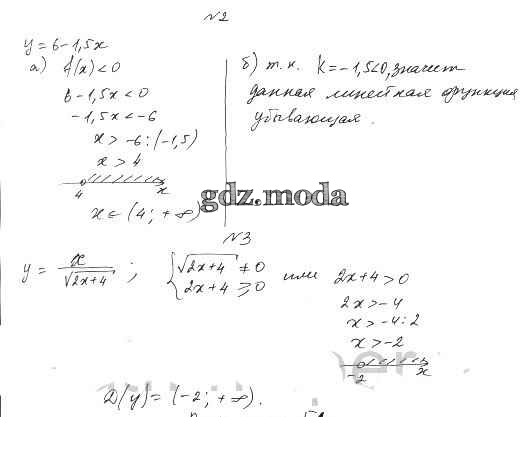 №2
y = 6 - 1,5x
а) f(x) < 0
6 - 1,5x < 0
-1,5x < -6
x > -6 : (-1,5)
x > 4
4 x
x ∈ (4; +∞)
б) т.к. k = -1,5<0, значит
данная линейная функция
убывающая.
gdz.moda
№3
y = x / √(2x+4) ; { √(2x+4) ≠ 0
2x+4 ⩾ 0
или 2x+4 > 0
2x > -4
x > -4 : 2
x > -2
-2 x
D(y) = (-2; +∞).